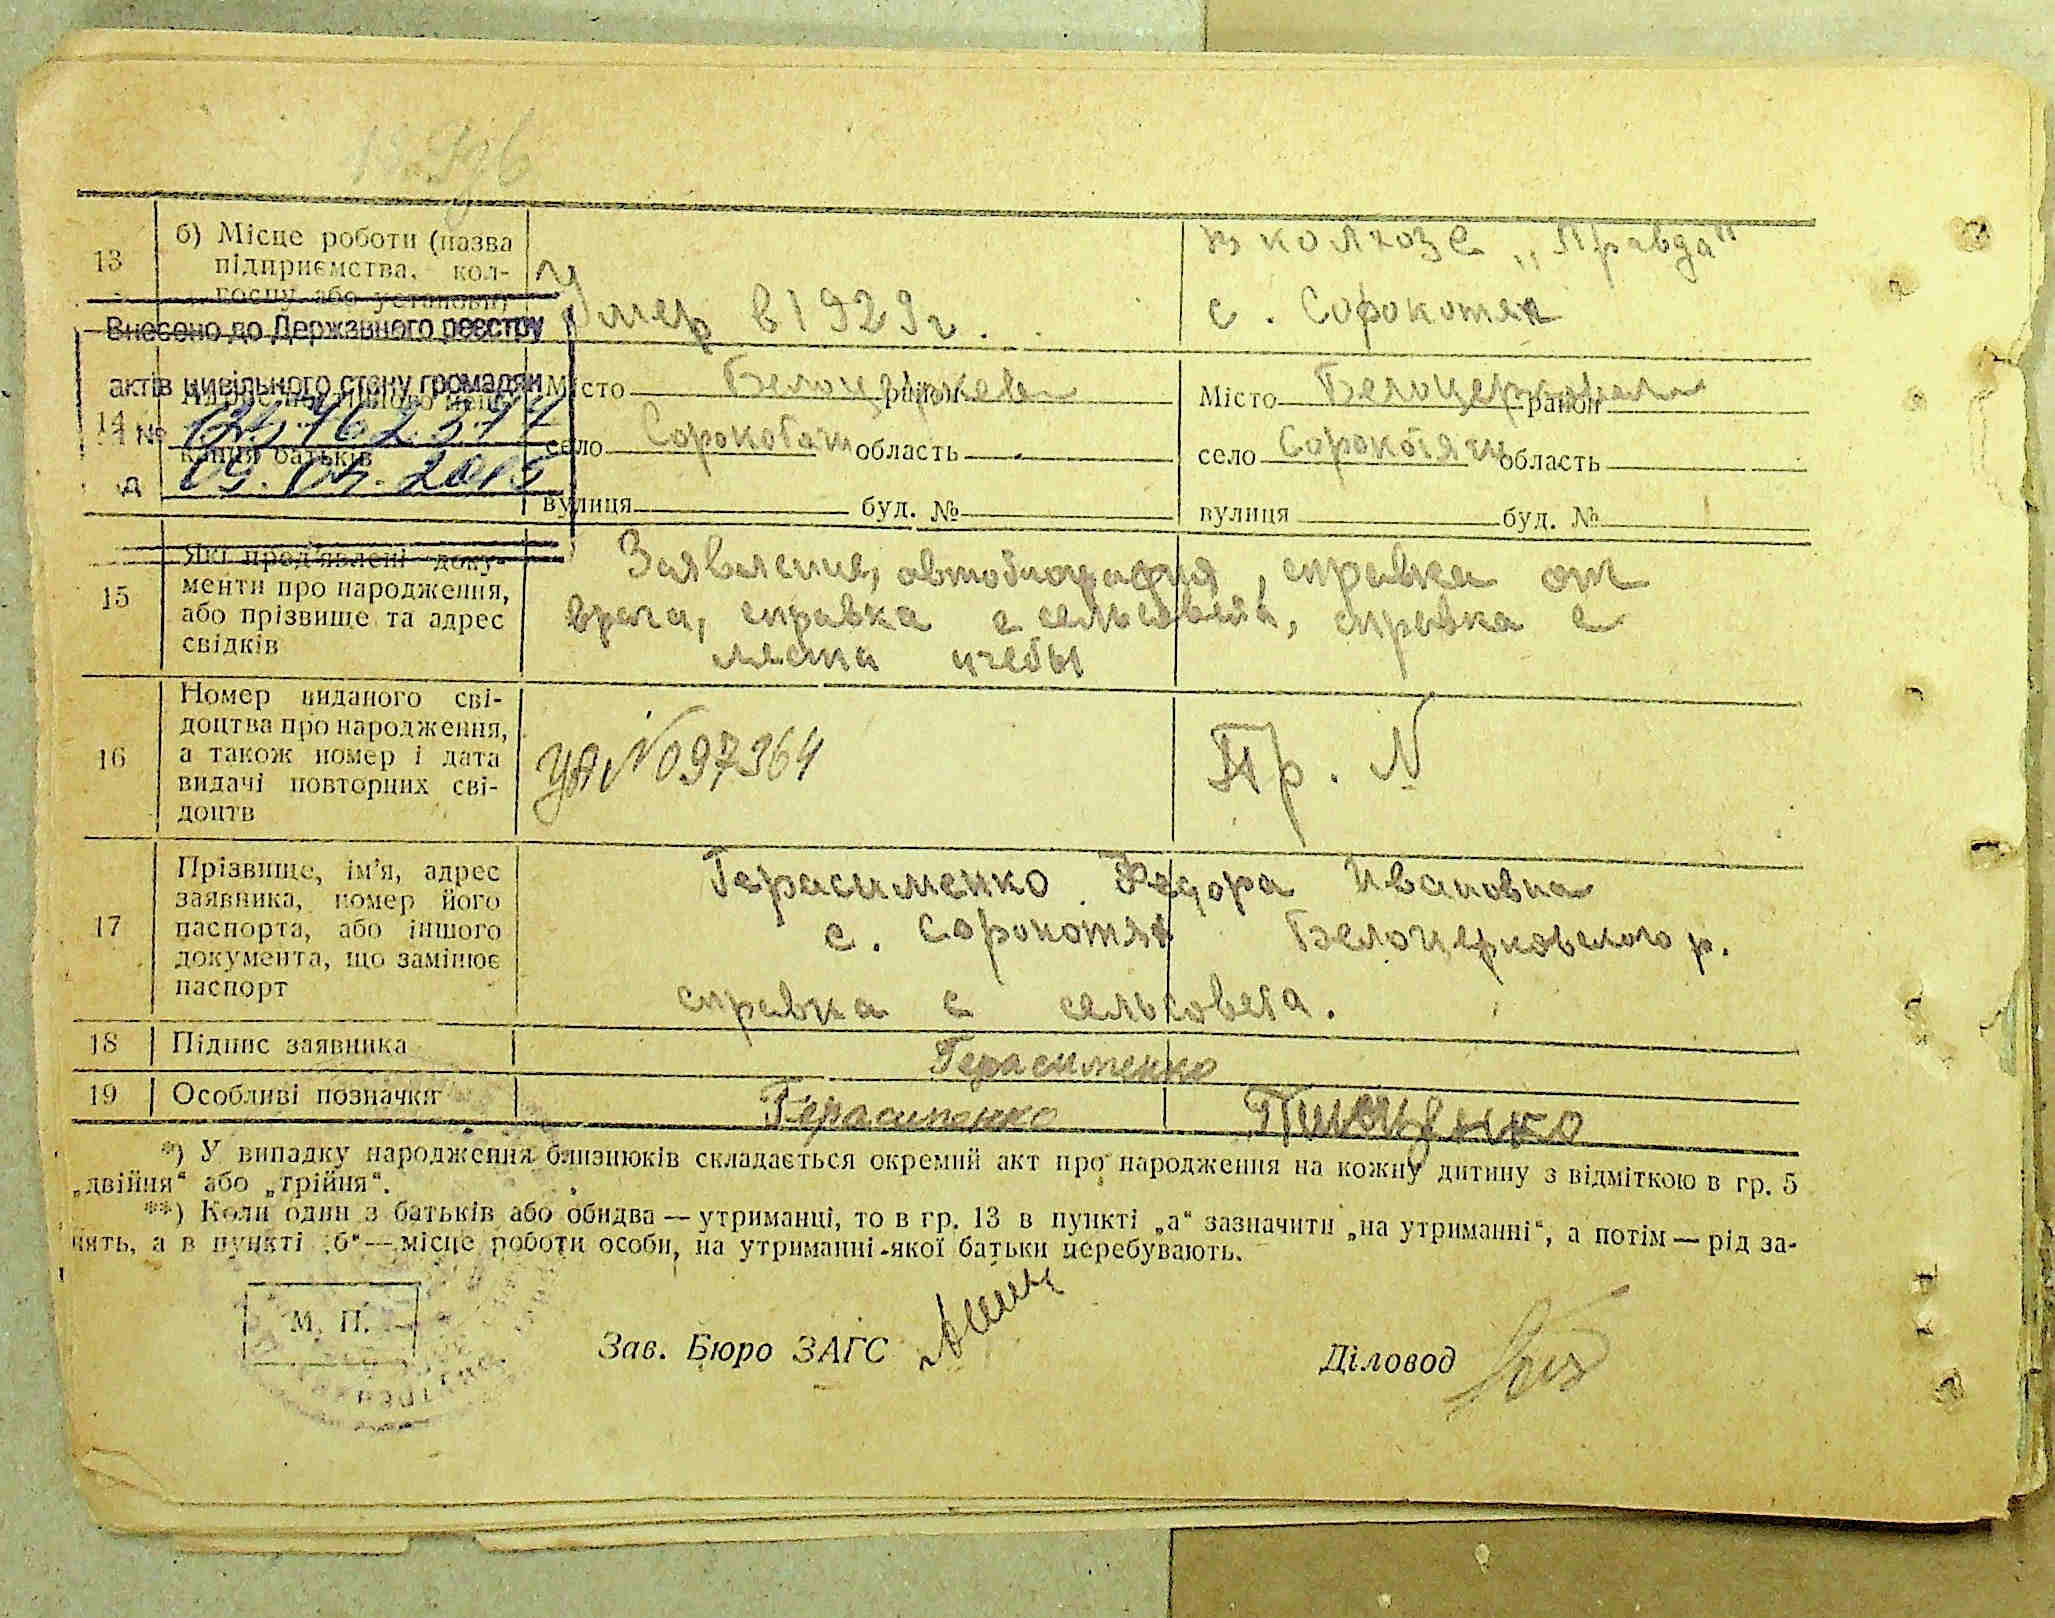 13
б) Місце роботи (назва
підприємства, кол-
госпу або установи)
Умер в 1929г.
в колхозе „Правда"
с. Сорокотяг
Внесено до Державного реєстру
актів цивільного стану громадян
14
№
канця батьків
Місто Белоцерковск район
село область
вулиця буд. №
Місто Белоцерковск район
село Сорокотяги область
вулиця буд. №
15
Які пред'явлені доку-
менти про народження,
або прізвище та адрес
свідків
Заявление, автобиография, справка от
врача, справка с сельсовета, справка с
места учебы
16
Номер виданого сві-
доцтва про народження,
а також номер і дата
видачі повторних сві-
доцтв
УА № 097364
Пр. N
17
Прізвище, ім'я, адрес
заявника, номер його
паспорта, або іншого
документа, що замінює
паспорт
Герасименко Федора Ивановна
с. Сорокотяг Белоцерковского р.
справка с сельсовета.
18
Підпис заявника
Герасименко
19
Особливі позначки
Герасименко
*) У випадку народження близнюків складається окремий акт про народження на кожну дитину з відміткою в гр. 5
„двійня“ або „трійня“.
**) Коли один з батьків або обидва — утриманці, то в гр. 13 в пункті „а“ зазначити „на утриманні“, а потім — рід за-
нять, а в пункті „б“ — місце роботи особи, на утриманні якої батьки перебувають.
М. П.
Зав. Бюро ЗАГС
Діловод